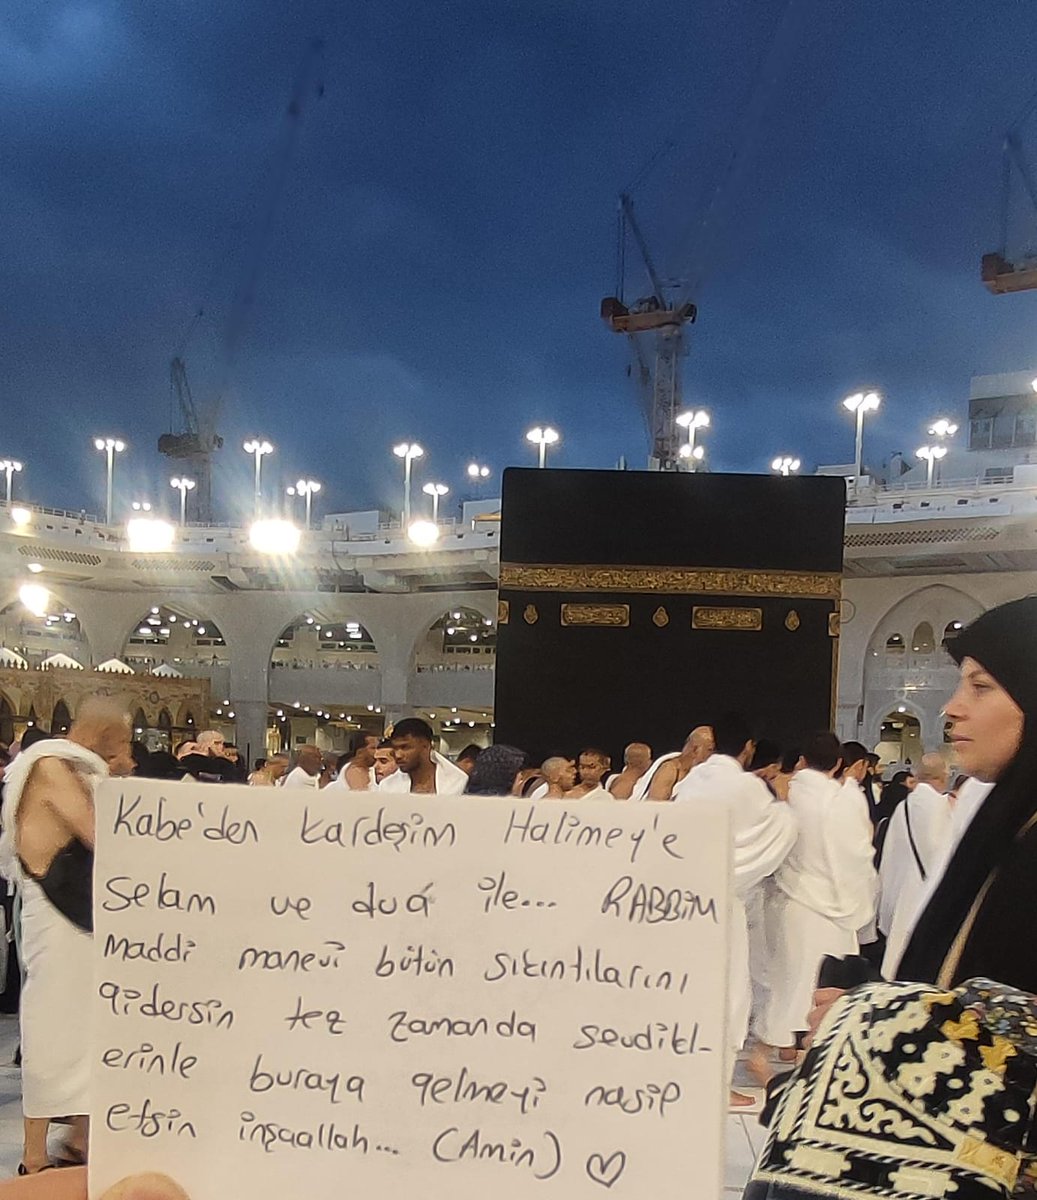 Kabe'den kardeşim Halimey'e
Selam ve duá ile... RABBİM
Maddi manevi bütün sıkıntılarını
gidersin tez zamanda sevdikl-
erinle buraya gelmeyi nasip
etsin inşaallah... (Amin) ♡